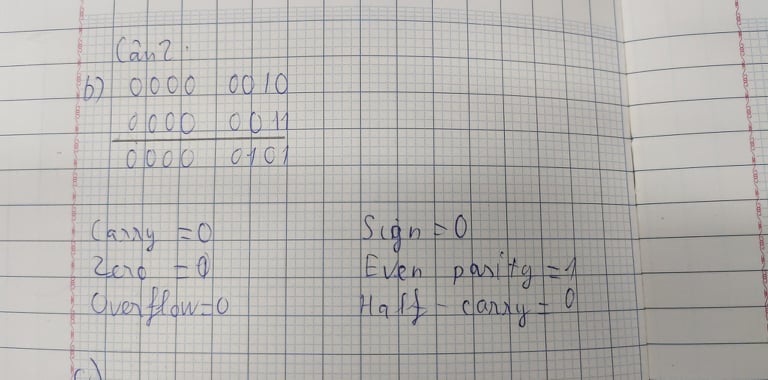 Câu 2.
b) 0000 0010
0000 0011
0000 0101
Carry = 0
Zero = 0
Overflow = 0
Sign = 0
Even parity = 1
Half - carry = 0
c)